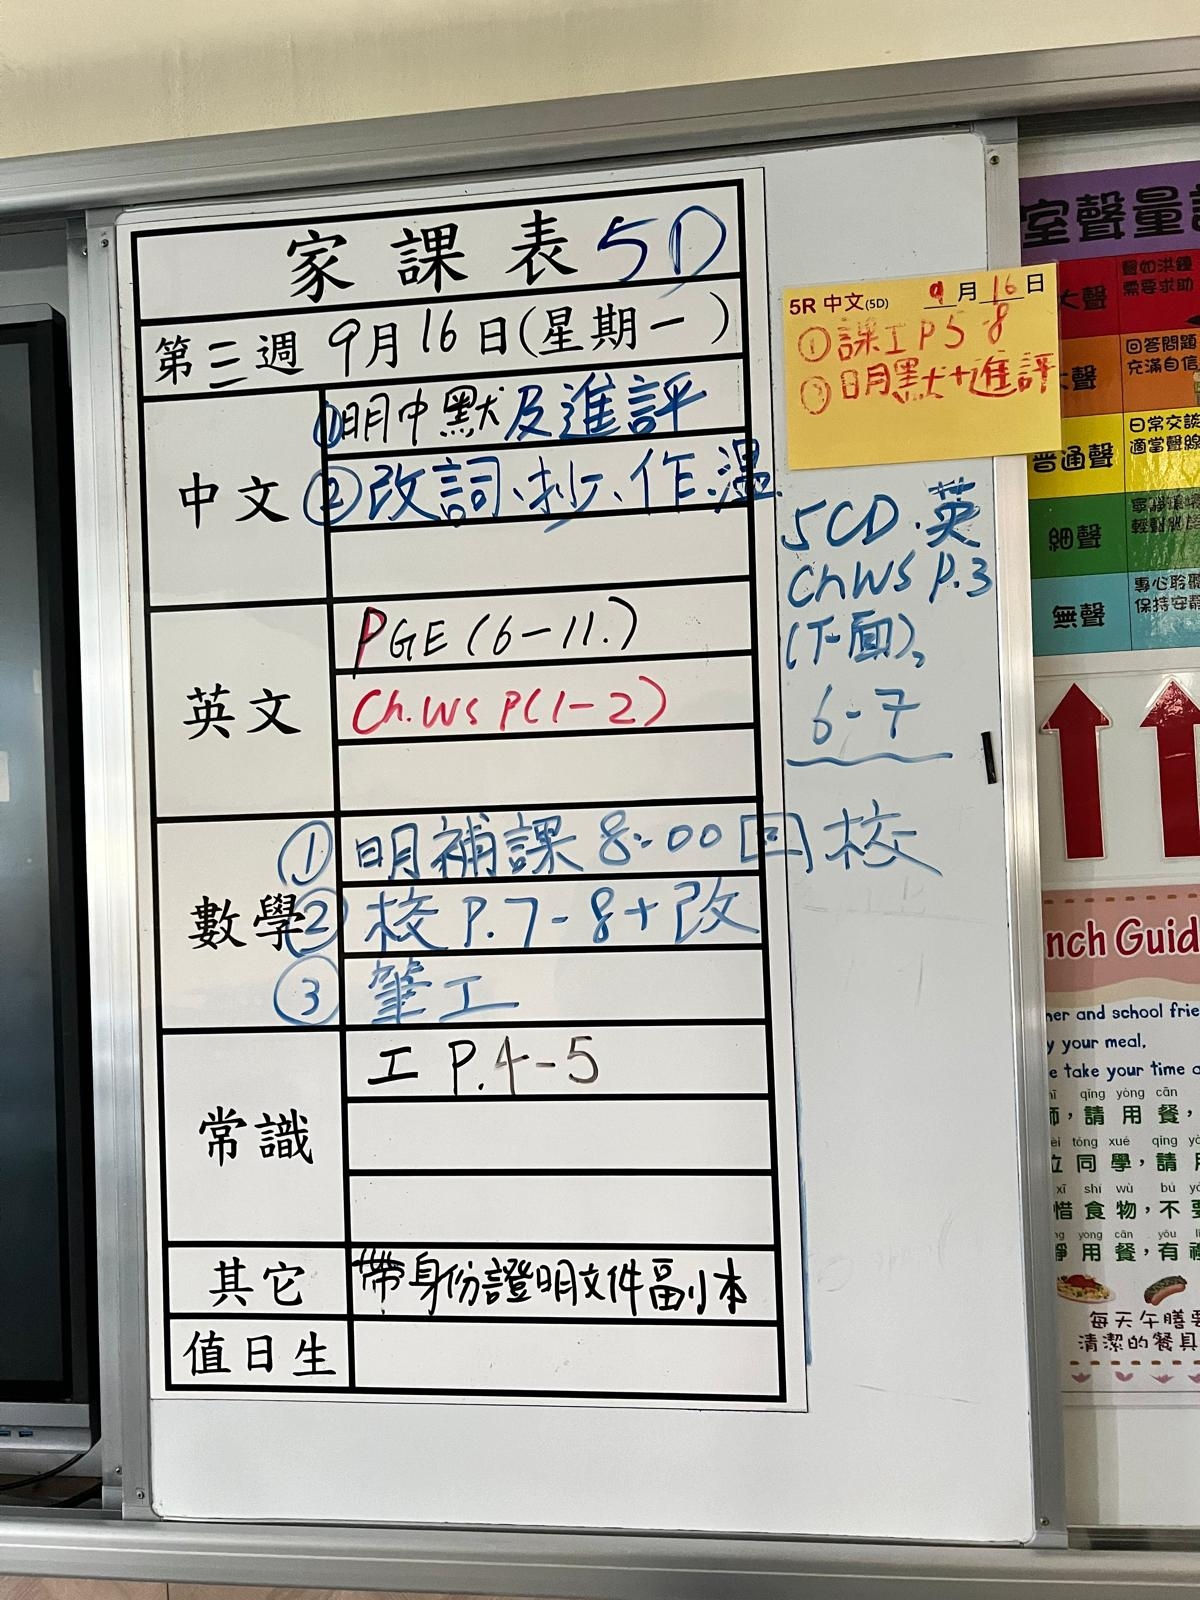 家課表 5D
第三週 9月16日(星期一)
中文
①明中默及進評
②改詞、抄、作、溫
英文
PGE (6-11.)
Ch.WS P(1-2)
數學
① 明補課 8:00回校
② 校 P.7-8+改
③ 筆工
常識
工 P.4-5
其它
帶身份證明文件副本
值日生
5R 中文(5D) 9月16日
①課工 P5-8
②明默+進評
5CD.英
ChWS P.3
(下面),
6-7
室聲量
大聲
聲如洪鐘
需要求助
大聲
回答問題
充滿自信
普通聲
日常交談
適當聲線
細聲
輕聲
無聲
專心聆聽
保持安靜
nch Guid
ner and school frie
y your meal,
e take your time a
qǐng yòng cān
師,請用餐,
tóng xué qǐng
位同學,請
xī shí wù bú
惜食物,不要
yòng cān yǒu
靜用餐,有禮
每天午膳要
清潔的餐具